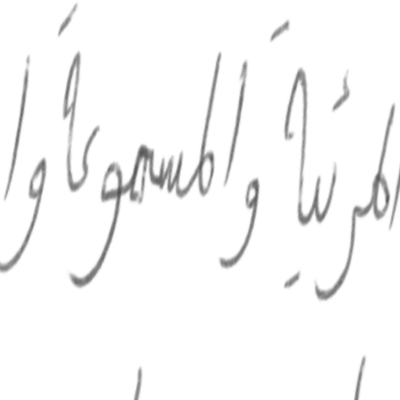 المرئية والمسموعة وا